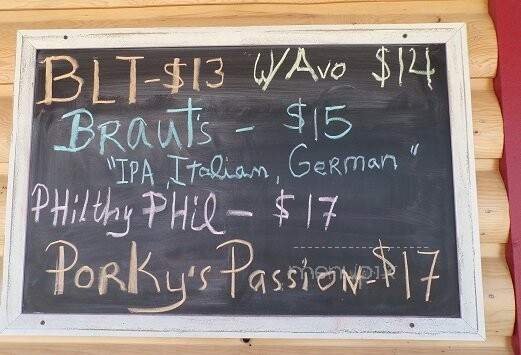 BLT-$13 W/Avo $14
BRAUT'S - $15
"IPA, Italian, German"
PHilthy PHil - $17
PORKy's PASSION-$17